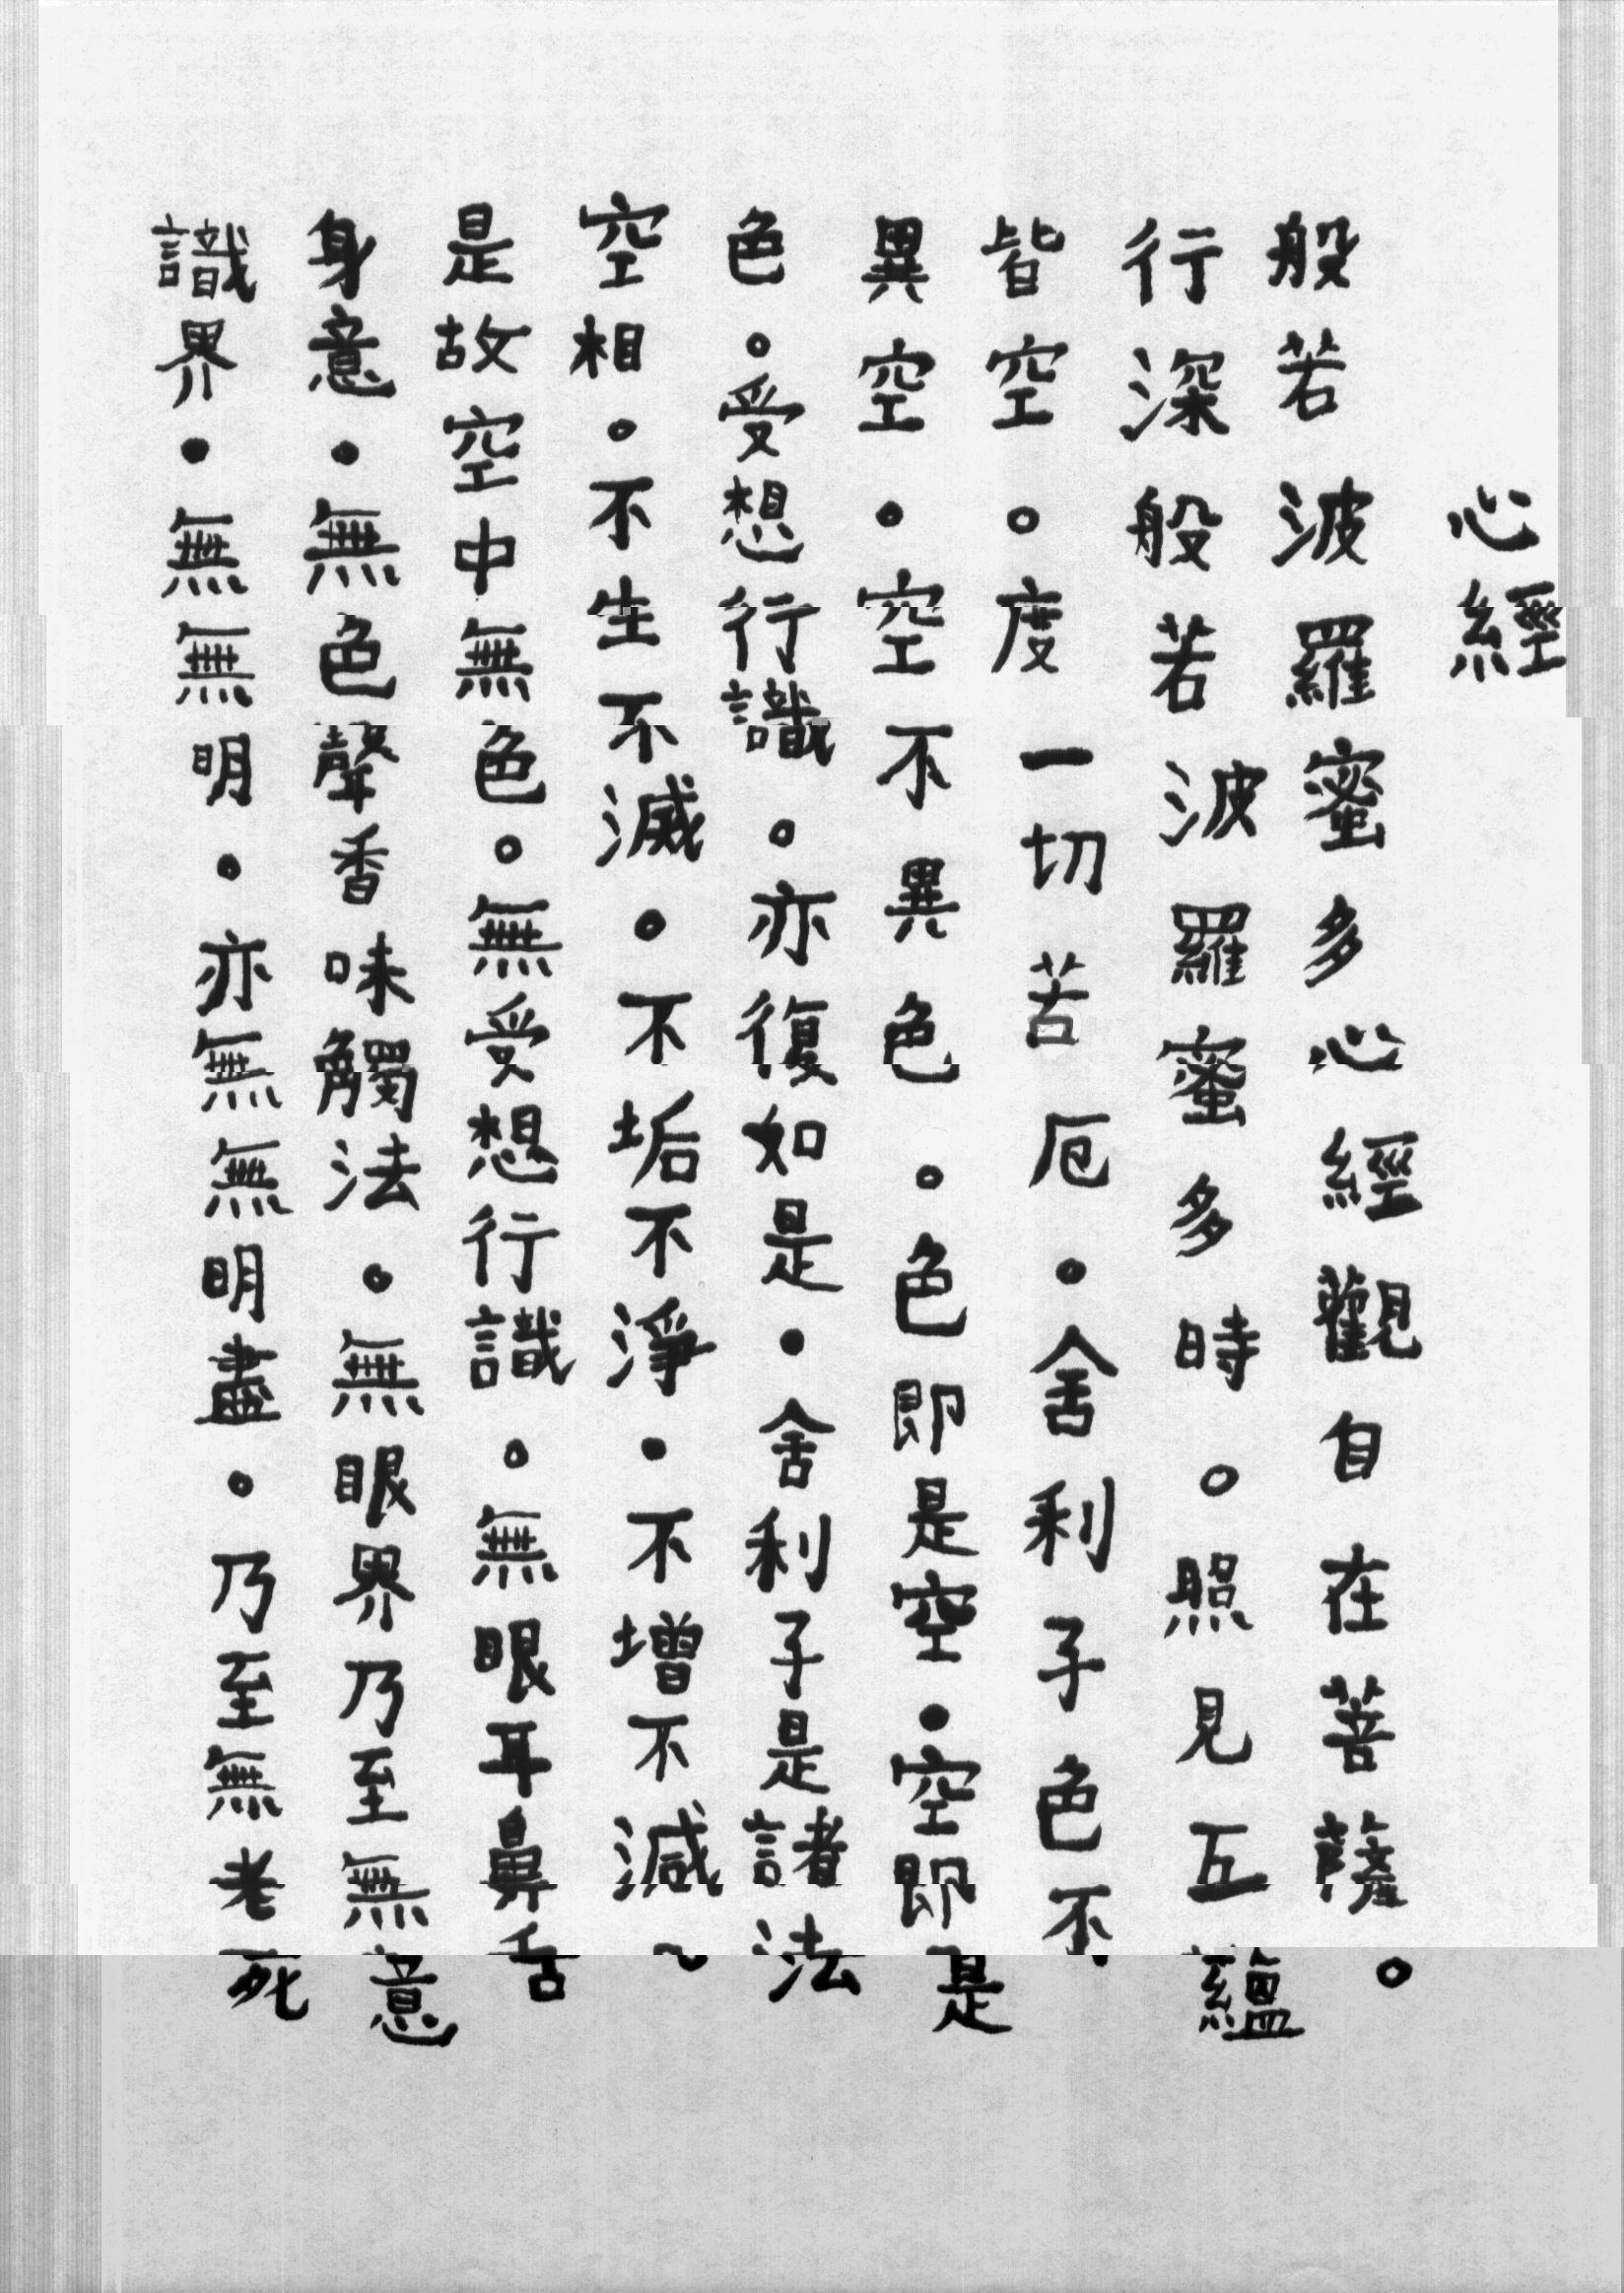 心經
般若波羅蜜多心經觀自在菩薩。
行深般若波羅蜜多時。照見五蘊
皆空。度一切苦厄。舍利子色不
異空.空不異色。色即是空.空即是
色。受想行識。亦復如是.舍利子是諸法
空相。不生不滅.不垢不淨.不增不減、
是故空中無色。無受想行識。無眼耳鼻舌
身意.無色聲香味觸法.無眼界乃至無意
識界.無無明.亦無無明盡.乃至無老死